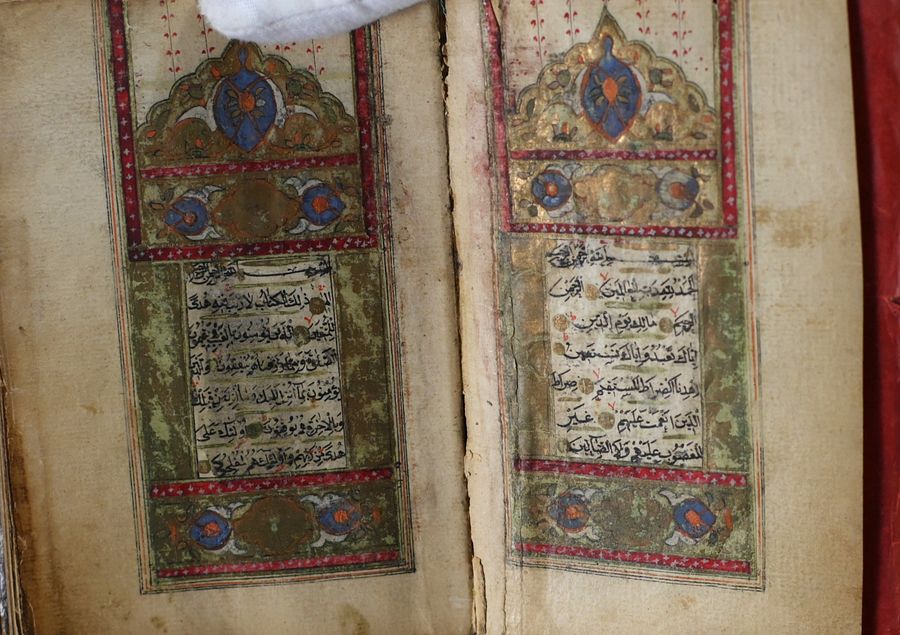 بسم الله الرحمن الرحيم
الحمد لله رب العالمين الرحمن
الرحيم مالك يوم الدين
اياك نعبد واياك نستعين
اهدنا الصراط المستقيم صراط
الذين انعمت عليهم غير
المغضوب عليهم ولا الضالين
بسم الله الرحمن الرحيم
الم ذلك الكتاب لا ريب فيه هدى
للمتقين الذين يؤمنون بالغيب ويقيمون
الصلوة ومما رزقناهم ينفقون والذين
يؤمنون بما انزل اليك وما انزل من قبلك
وبالاخرة هم يوقنون اولئك على
هدى من ربهم واولئك هم المفلحون